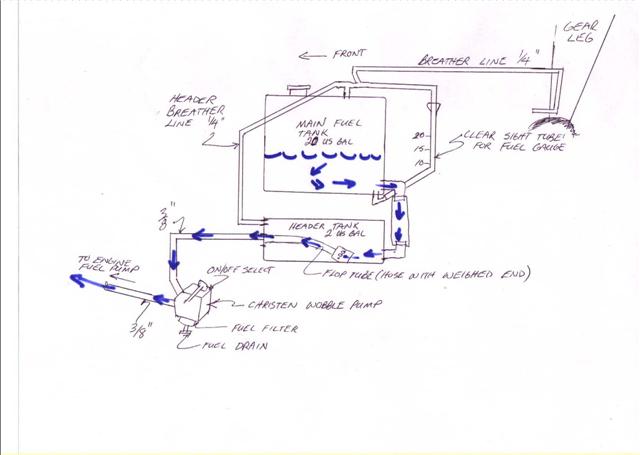 GEAR
LEG
← FRONT
BREATHER LINE 1/4"
HEADER
BREATHER
LINE 1/4"
MAIN FUEL
TANK
20 US GAL
20
15
10
CLEAR SIGHT TUBE
FOR FUEL GAUGE
3/8"
HEADER TANK
2 US GAL
TO ENGINE
FUEL PUMP
ON/OFF SELECT
FLOP TUBE (HOSE WITH WEIGHED END)
CHRISTEN WOBBLE PUMP
3/8"
FUEL FILTER
FUEL DRAIN